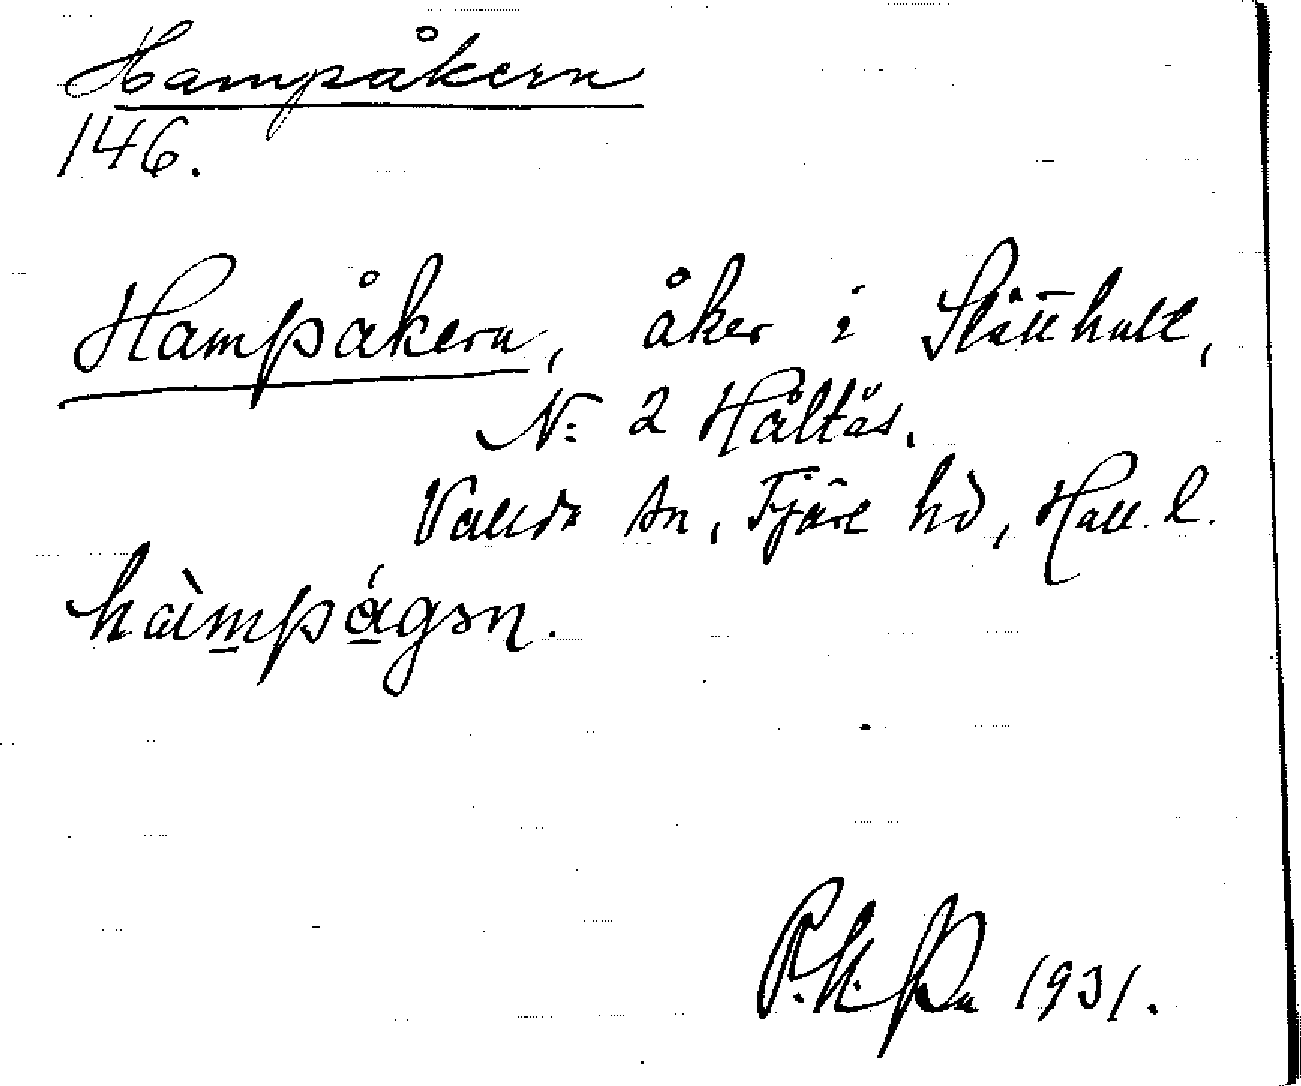 Hampåkern
146.
Hampåkern, åker i Slätthult,
No 2 Håltås.
Vallda sn, Fjäre hd, Hall. l.
hàmpágən.
P. H. Pn 1931.